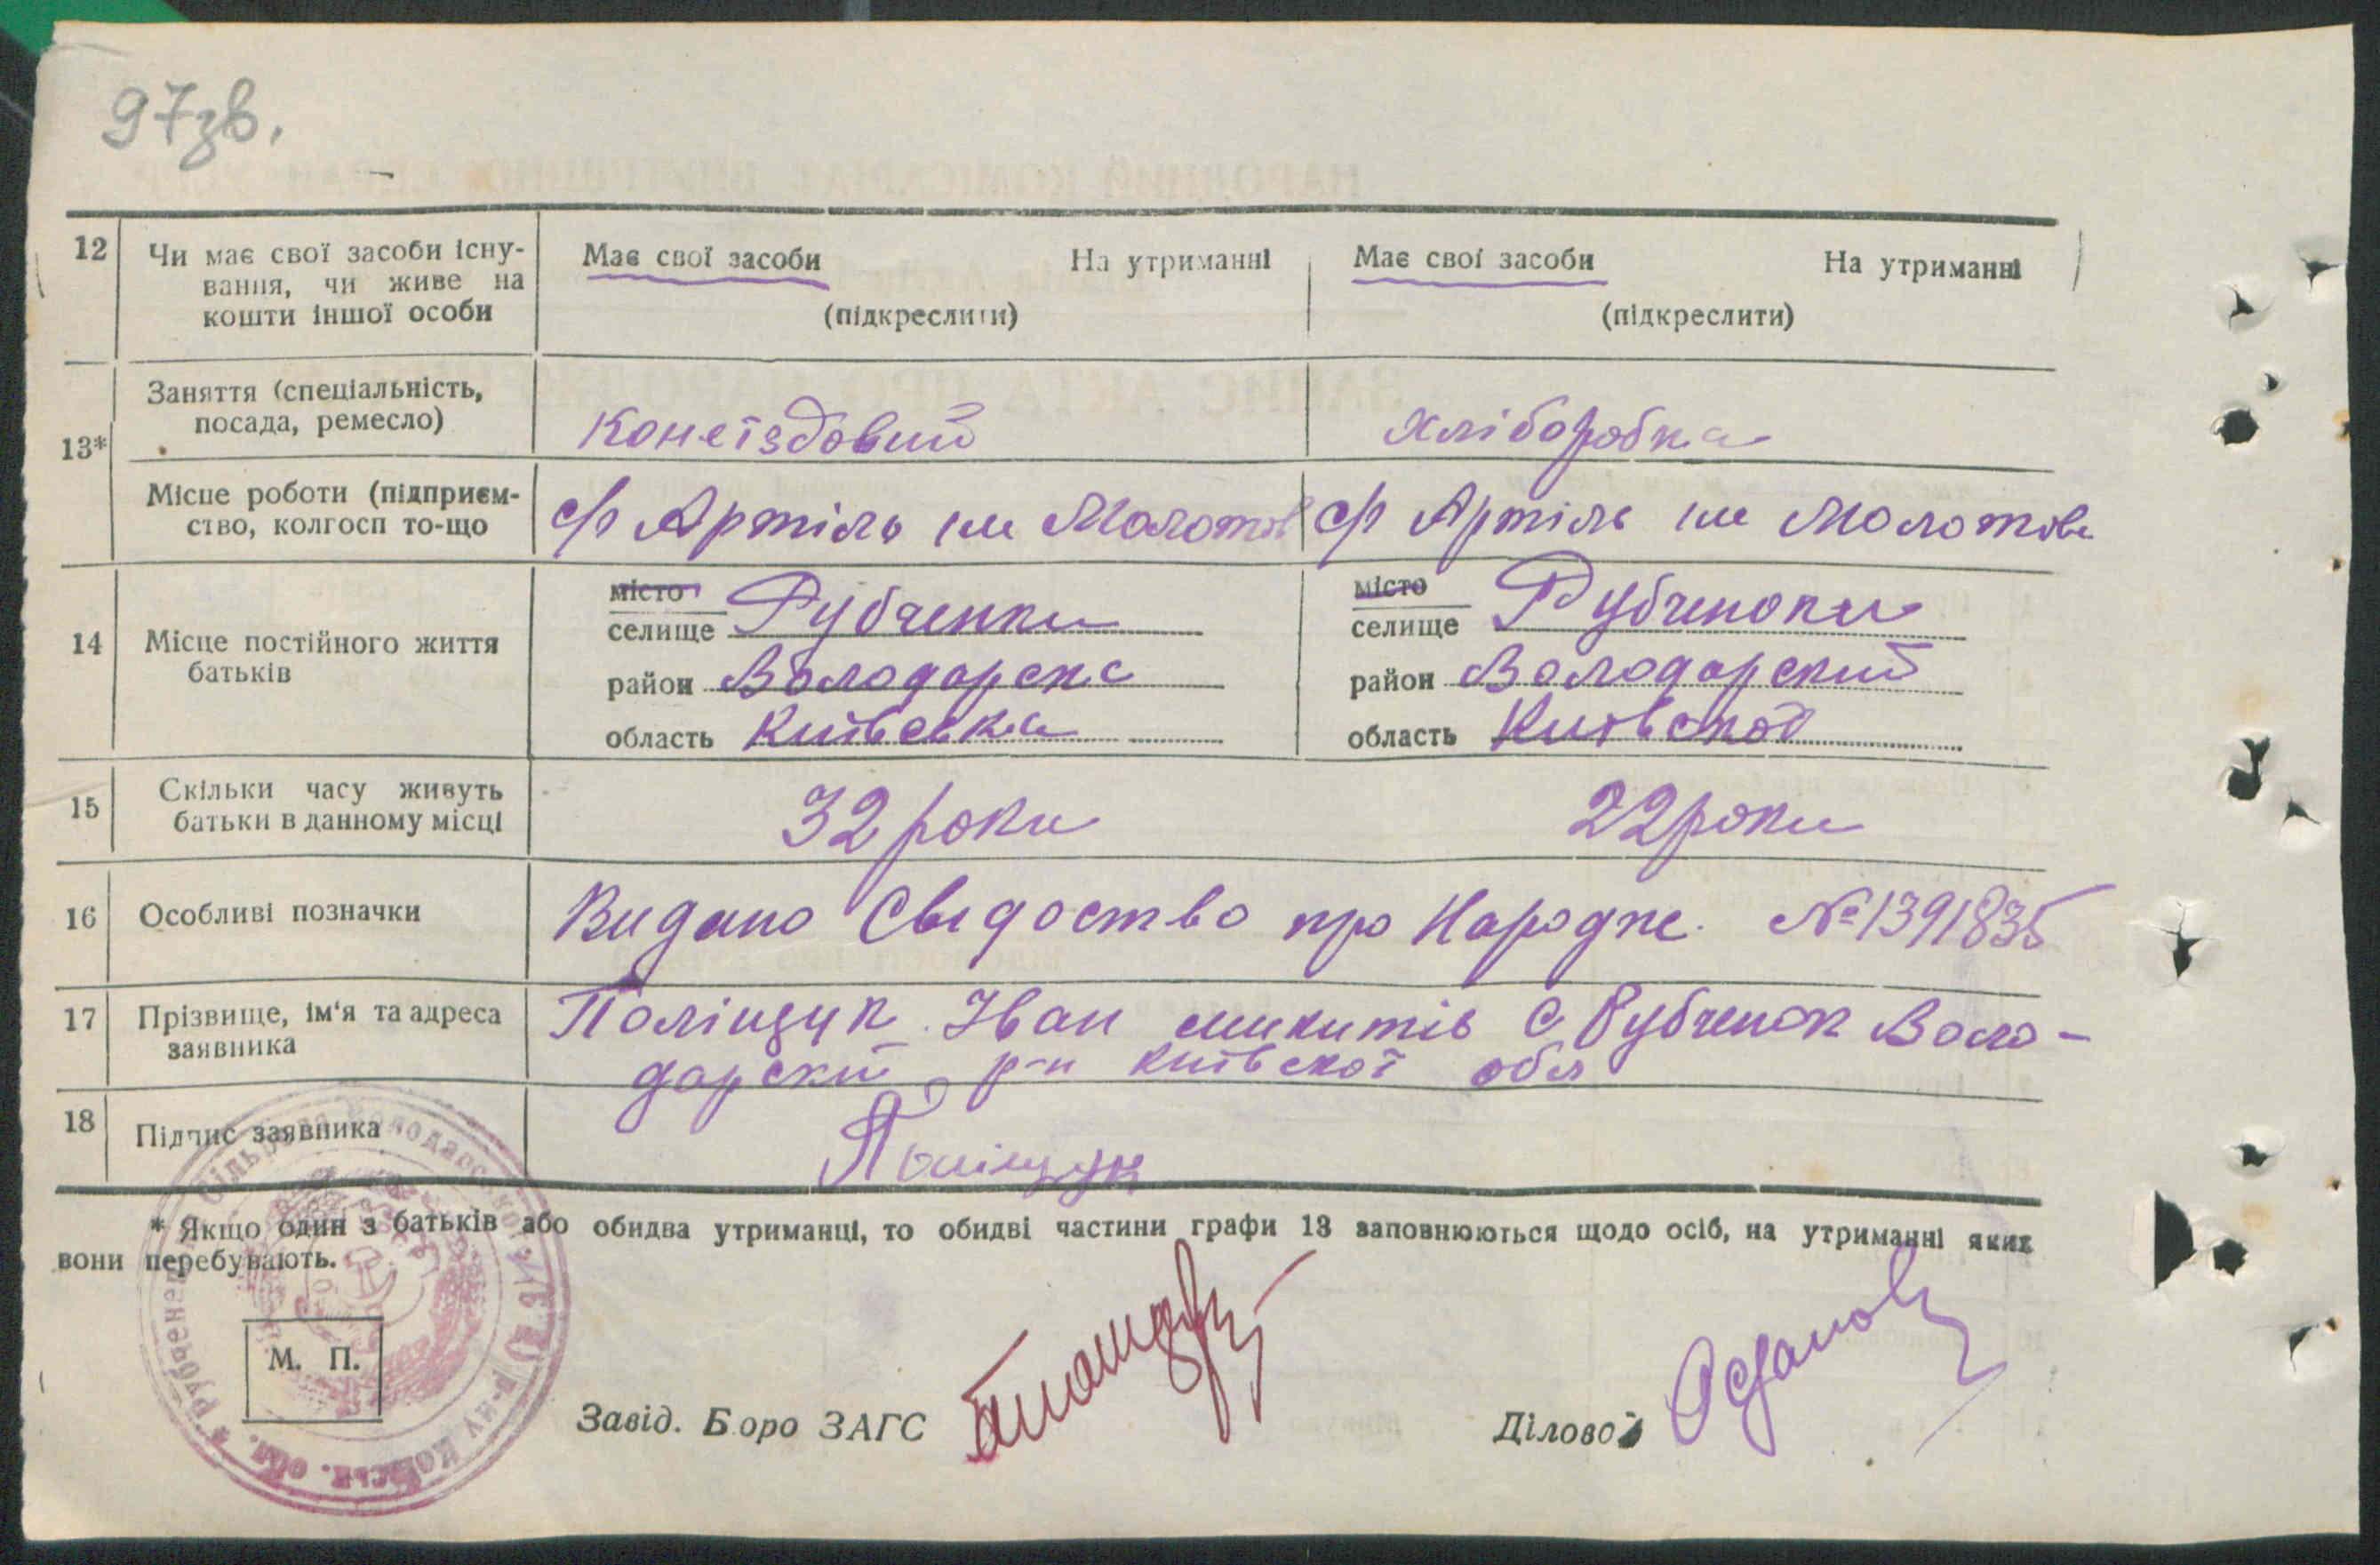 97зв.
12 Чи має свої засоби існу-
вання, чи живе на
кошти іншої особи
Має свої засоби На утриманні
(підкреслити)
Має свої засоби На утриманні
(підкреслити)
13*
Заняття (спеціальність,
посада, ремесло)
Конеїздовий
хліборобка
Місце роботи (підприєм-
ство, колгосп то-що
с/г Артіль ім Молотов
с/г Артіль ім Молотова
14 Місце постійного життя
батьків
місто
селище Рубченки
район Володарска
область Київська
місто
селище Рубченоки
район Володарский
область Київской
15 Скільки часу живуть
батьки в данному місці
32 роки
22 роки
16 Особливі позначки
Видано Свідоство про Народже. № 1391835
17 Прізвище, ім'я та адреса
заявника
Поліщук Іван микитів С Рубченок Воло-
дарский р-н київскої обл
18 Підпис заявника
Поліщук
* Якщо один з батьків або обидва утриманці, то обидві частини графи 13 заповнюються щодо осіб, на утриманні яких
вони перебувають.
М. П.
Завід. Бюро ЗАГС
Діловод